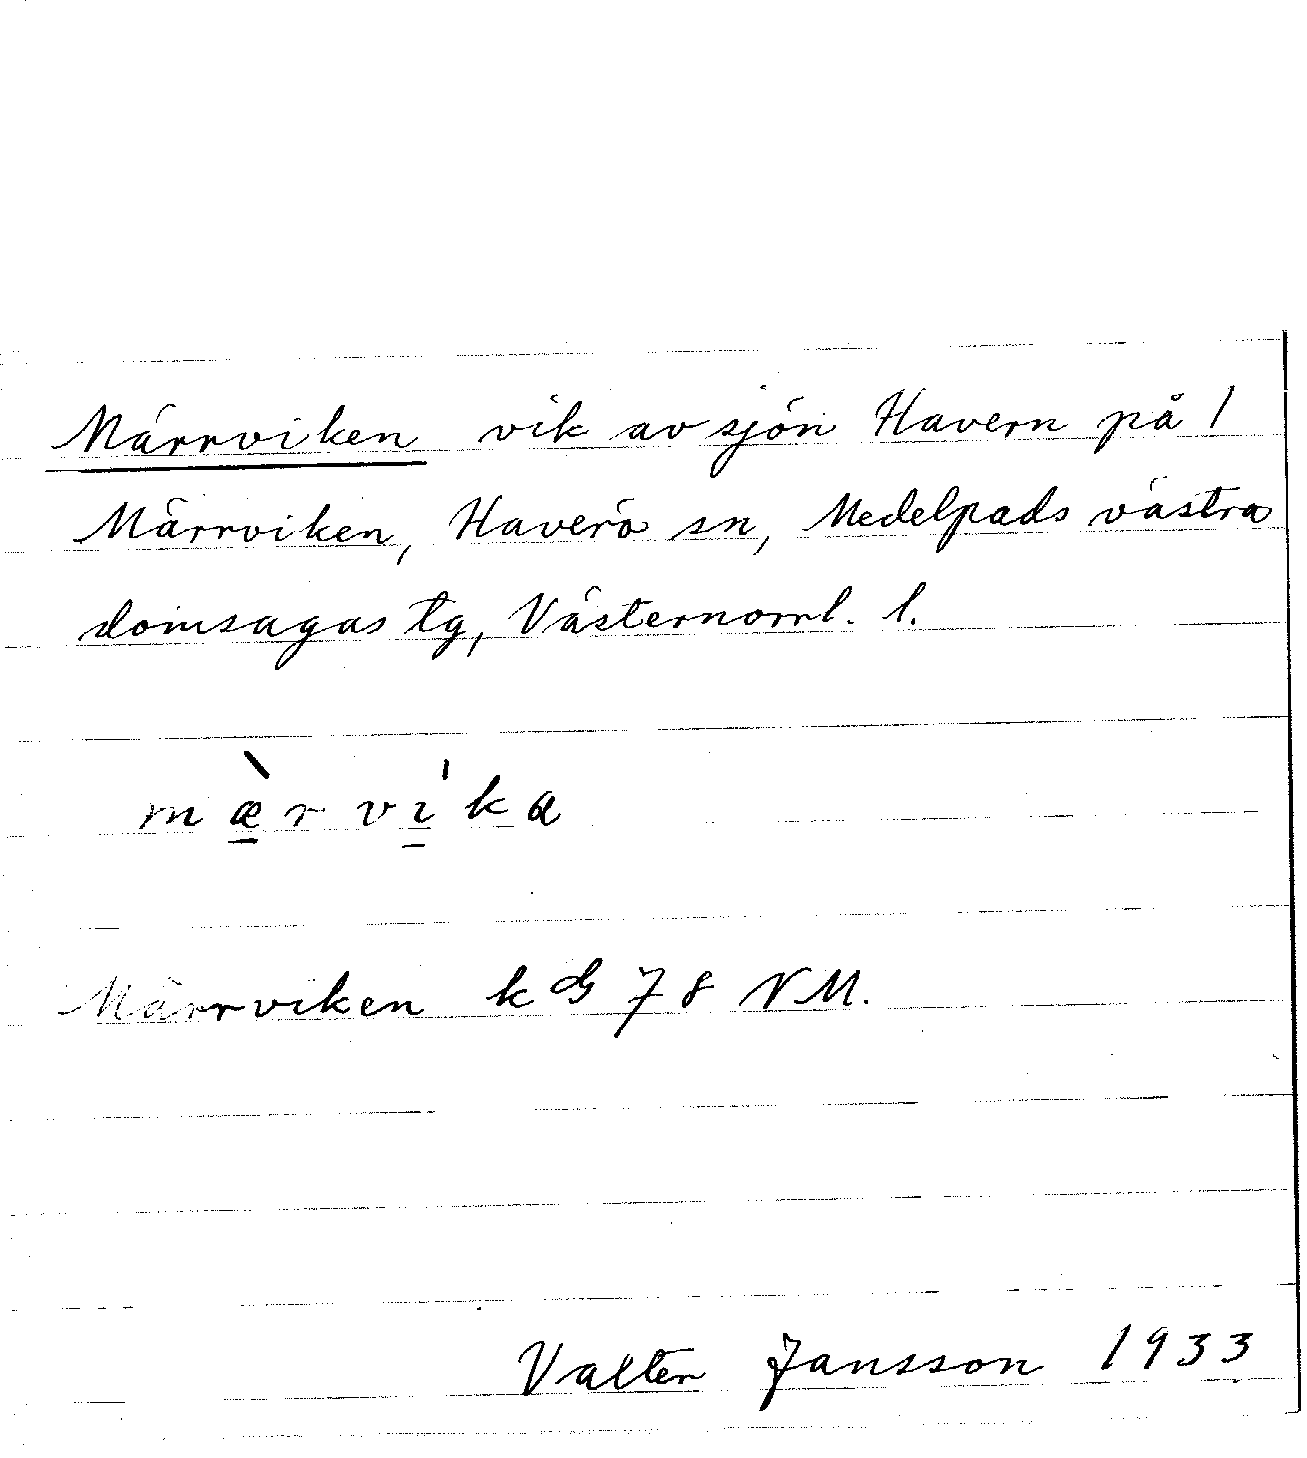 Märrviken vik av sjön Havern på 1
Märrviken, Haverö sn, Medelpads västra
domsagas tg, Västernorrl. l.
mæ̠̀rvi̠̍ka
Märrviken kG 78 NM.
Valter Jansson 1933